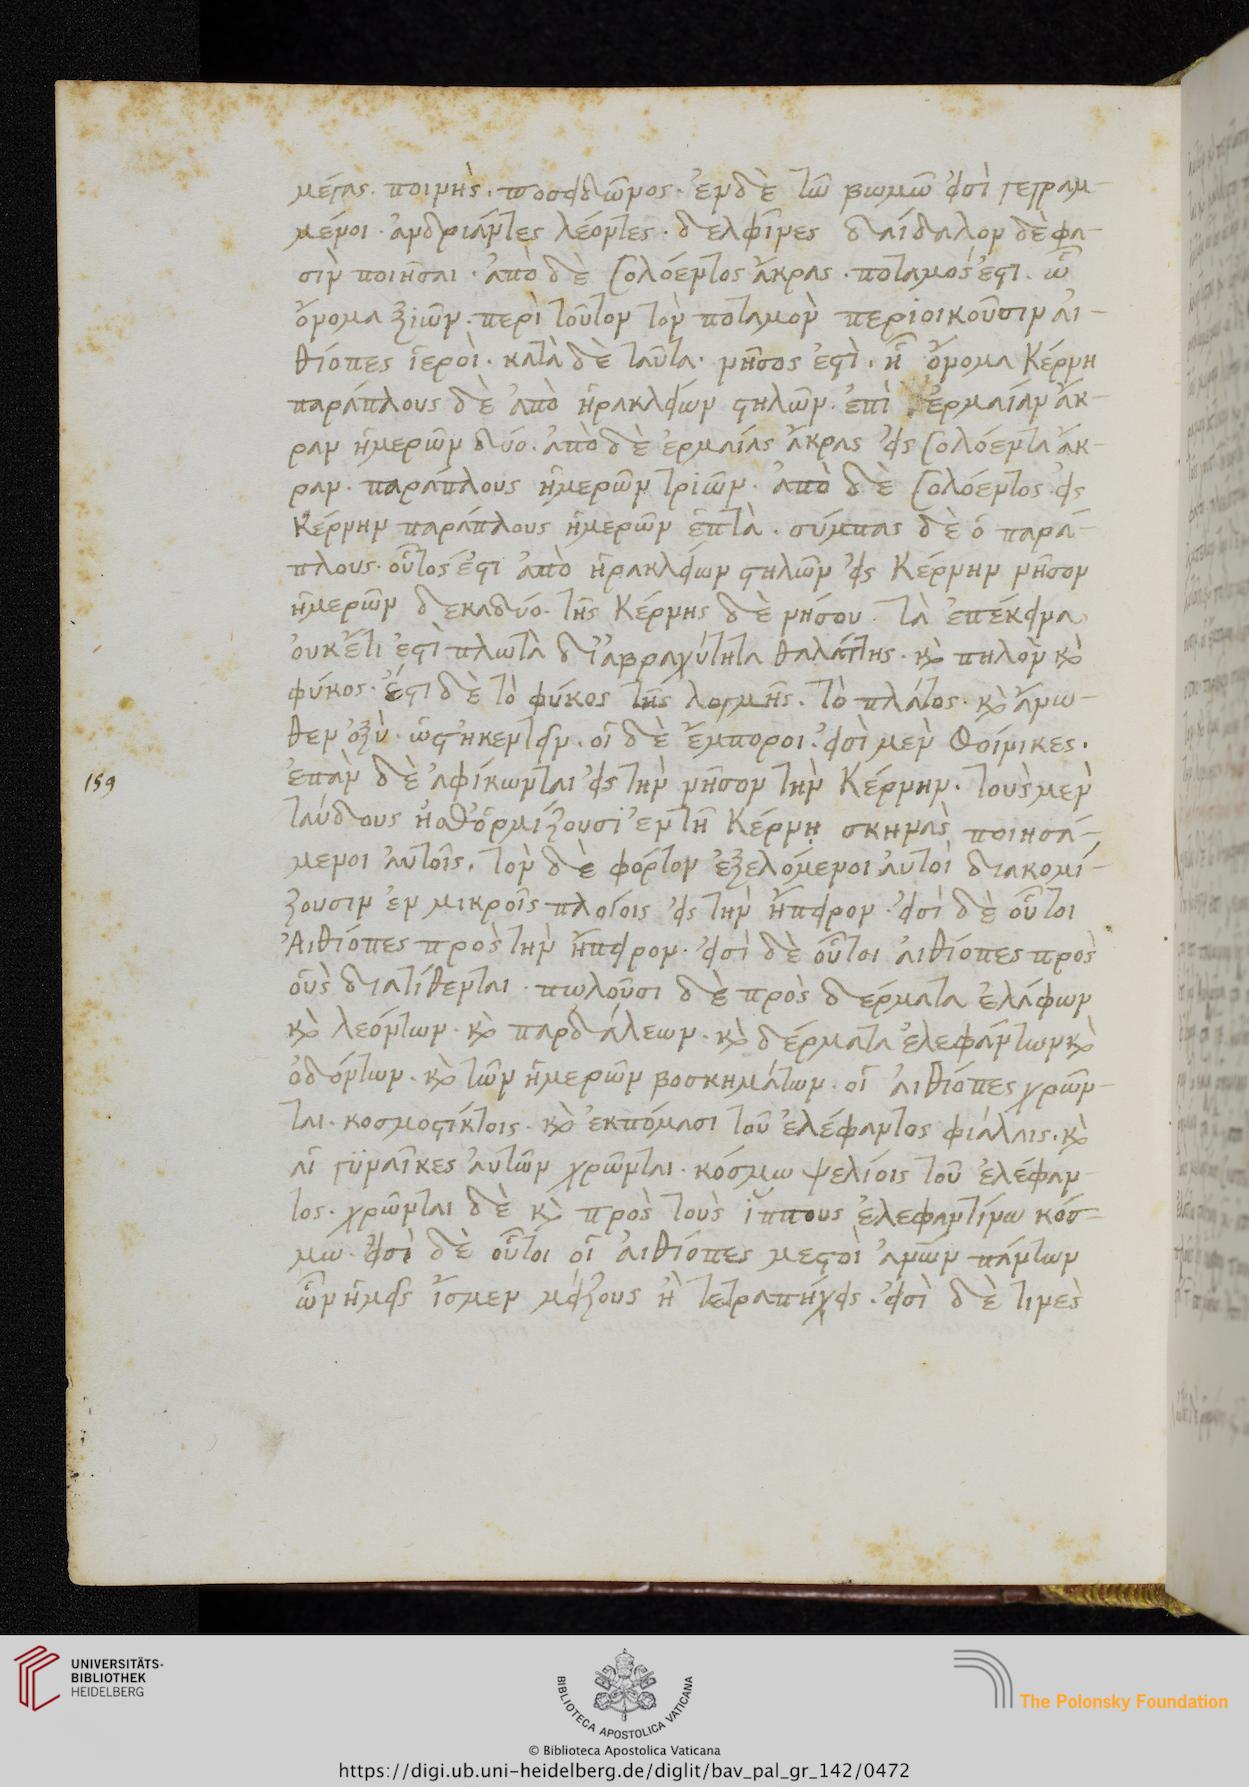 μέγας. ποινὴς. ποσειδῶνος. ἐν δὲ τῶ βωμῶ εἰσὶ γεγραμ-
μένοι. ἀνδριάντες λέοντες. δελφῖνες δαίδαλον δὲ φα-
σὶν ποιῆσαι. ἀπὸ δὲ Σολόεντος ἄκρας. ποταμός ἐστι. ὧ
ὄνομα ξιῶν. περὶ τοῦτον τὸν ποταμὸν περιοικοῦσιν αἰ-
θίοπες ἱεροὶ. κατὰ δὲ ταῦτα. νῆσος ἐστὶ. ἧ ὄνομα Κέρνη
παράπλους δὲ ἀπὸ ἡρακλείων στηλῶν. ἐπὶ ἑρμαίαν ἄκ-
ραν ἡμερῶν δύο. ἀπὸ δὲ ἑρμαίας ἄκρας εἰς Σολόεντα ἄκ-
ραν. παράπλους ἡμερῶν τριῶν. ἀπὸ δὲ Σολόεντος εἰς
Κέρνην παράπλους ἡμερῶν ἑπτὰ. σύμπας δὲ ὁ παρά-
πλους. οὗτός ἐστι ἀπὸ ἡρακλείων στηλῶν εἰς Κέρνην νῆσον
ἡμερῶν δεκαδύο. τῆς Κέρνης δὲ νήσου τὰ ἐπέκεινα
ὀυκέτι ἐστὶ πλωτὰ διἀβραχύτητα θαλάττης. κὶ πηλὸν κὶ
φύκος. ἔστι δὲ τὸ φύκος τῆς λογμῆς. τὸ πλάτος. κὶ ἄνω-
θεν ὀξὺ. ὡστηκεντεῖν. οἱ δὲ ἔμποροι. εἰσὶ μὲν Φοίνικες.
ἐπὰν δὲ ἀφίκωνται εἰς τὴν νῆσον τὴν Κέρνην. τοὺς μὲν
γαύλους καθορμίζουσι ἐν τῆ Κέρνῃ σκηνὰς ποιησά-
μενοι ἀυτοῖς. τὸν δὲ φόρτον ἐξελόμενοι ἀυτοὶ διακομί-
ζουσιν ἐν μικροῖς πλοίοις εἰς τὴν ἤπειρον. εἰσὶ δὲ οὗτοι
Ἀιθίοπες πρὸς τὴν ἤπειρον. εἰσὶ δὲ οὗτοι ἀιθίοπες πρὸς
οὓς διατίθενται. πωλοῦσι δὲ πρὸς δέρματα ἐλάφων
κὶ λεόντων. κὶ παρδάλεων. κὶ δέρματα ἐλεφάντων κὶ
ὀδόντων. κὶ τῶν ἡμερῶν βοσκημάτων. οἱ ἀιθίοπες χρῶν-
ται. κοσμοστίκτοις. κὶ ἐκπόμασι τοῦ ἐλέφαντος φιάλαις. κὶ
αἱ γυναῖκες ἀυτῶν χρῶνται. κόσμω ψελίοις τοῦ ἐλέφαν-
τος. χρῶνται δὲ κὶ πρὸς τοὺς ἵππους ἐλεφαντίνω κόσ-
μω. εἰσὶ δὲ οὗτοι οἱ ἀιθίοπες μεστοὶ ἀνῶν πάντων
ὧν ἡμεῖς ἴσμεν μείζους ἢ τετραπήχεις. εἰσὶ δὲ τινὲς
159
UNIVERSITÄTS-
BIBLIOTHEK
HEIDELBERG
BIBLIOTECA APOSTOLICA VATICANA
The Polonsky Foundation
© Biblioteca Apostolica Vaticana
https://digi.ub.uni-heidelberg.de/diglit/bav_pal_gr_142/0472